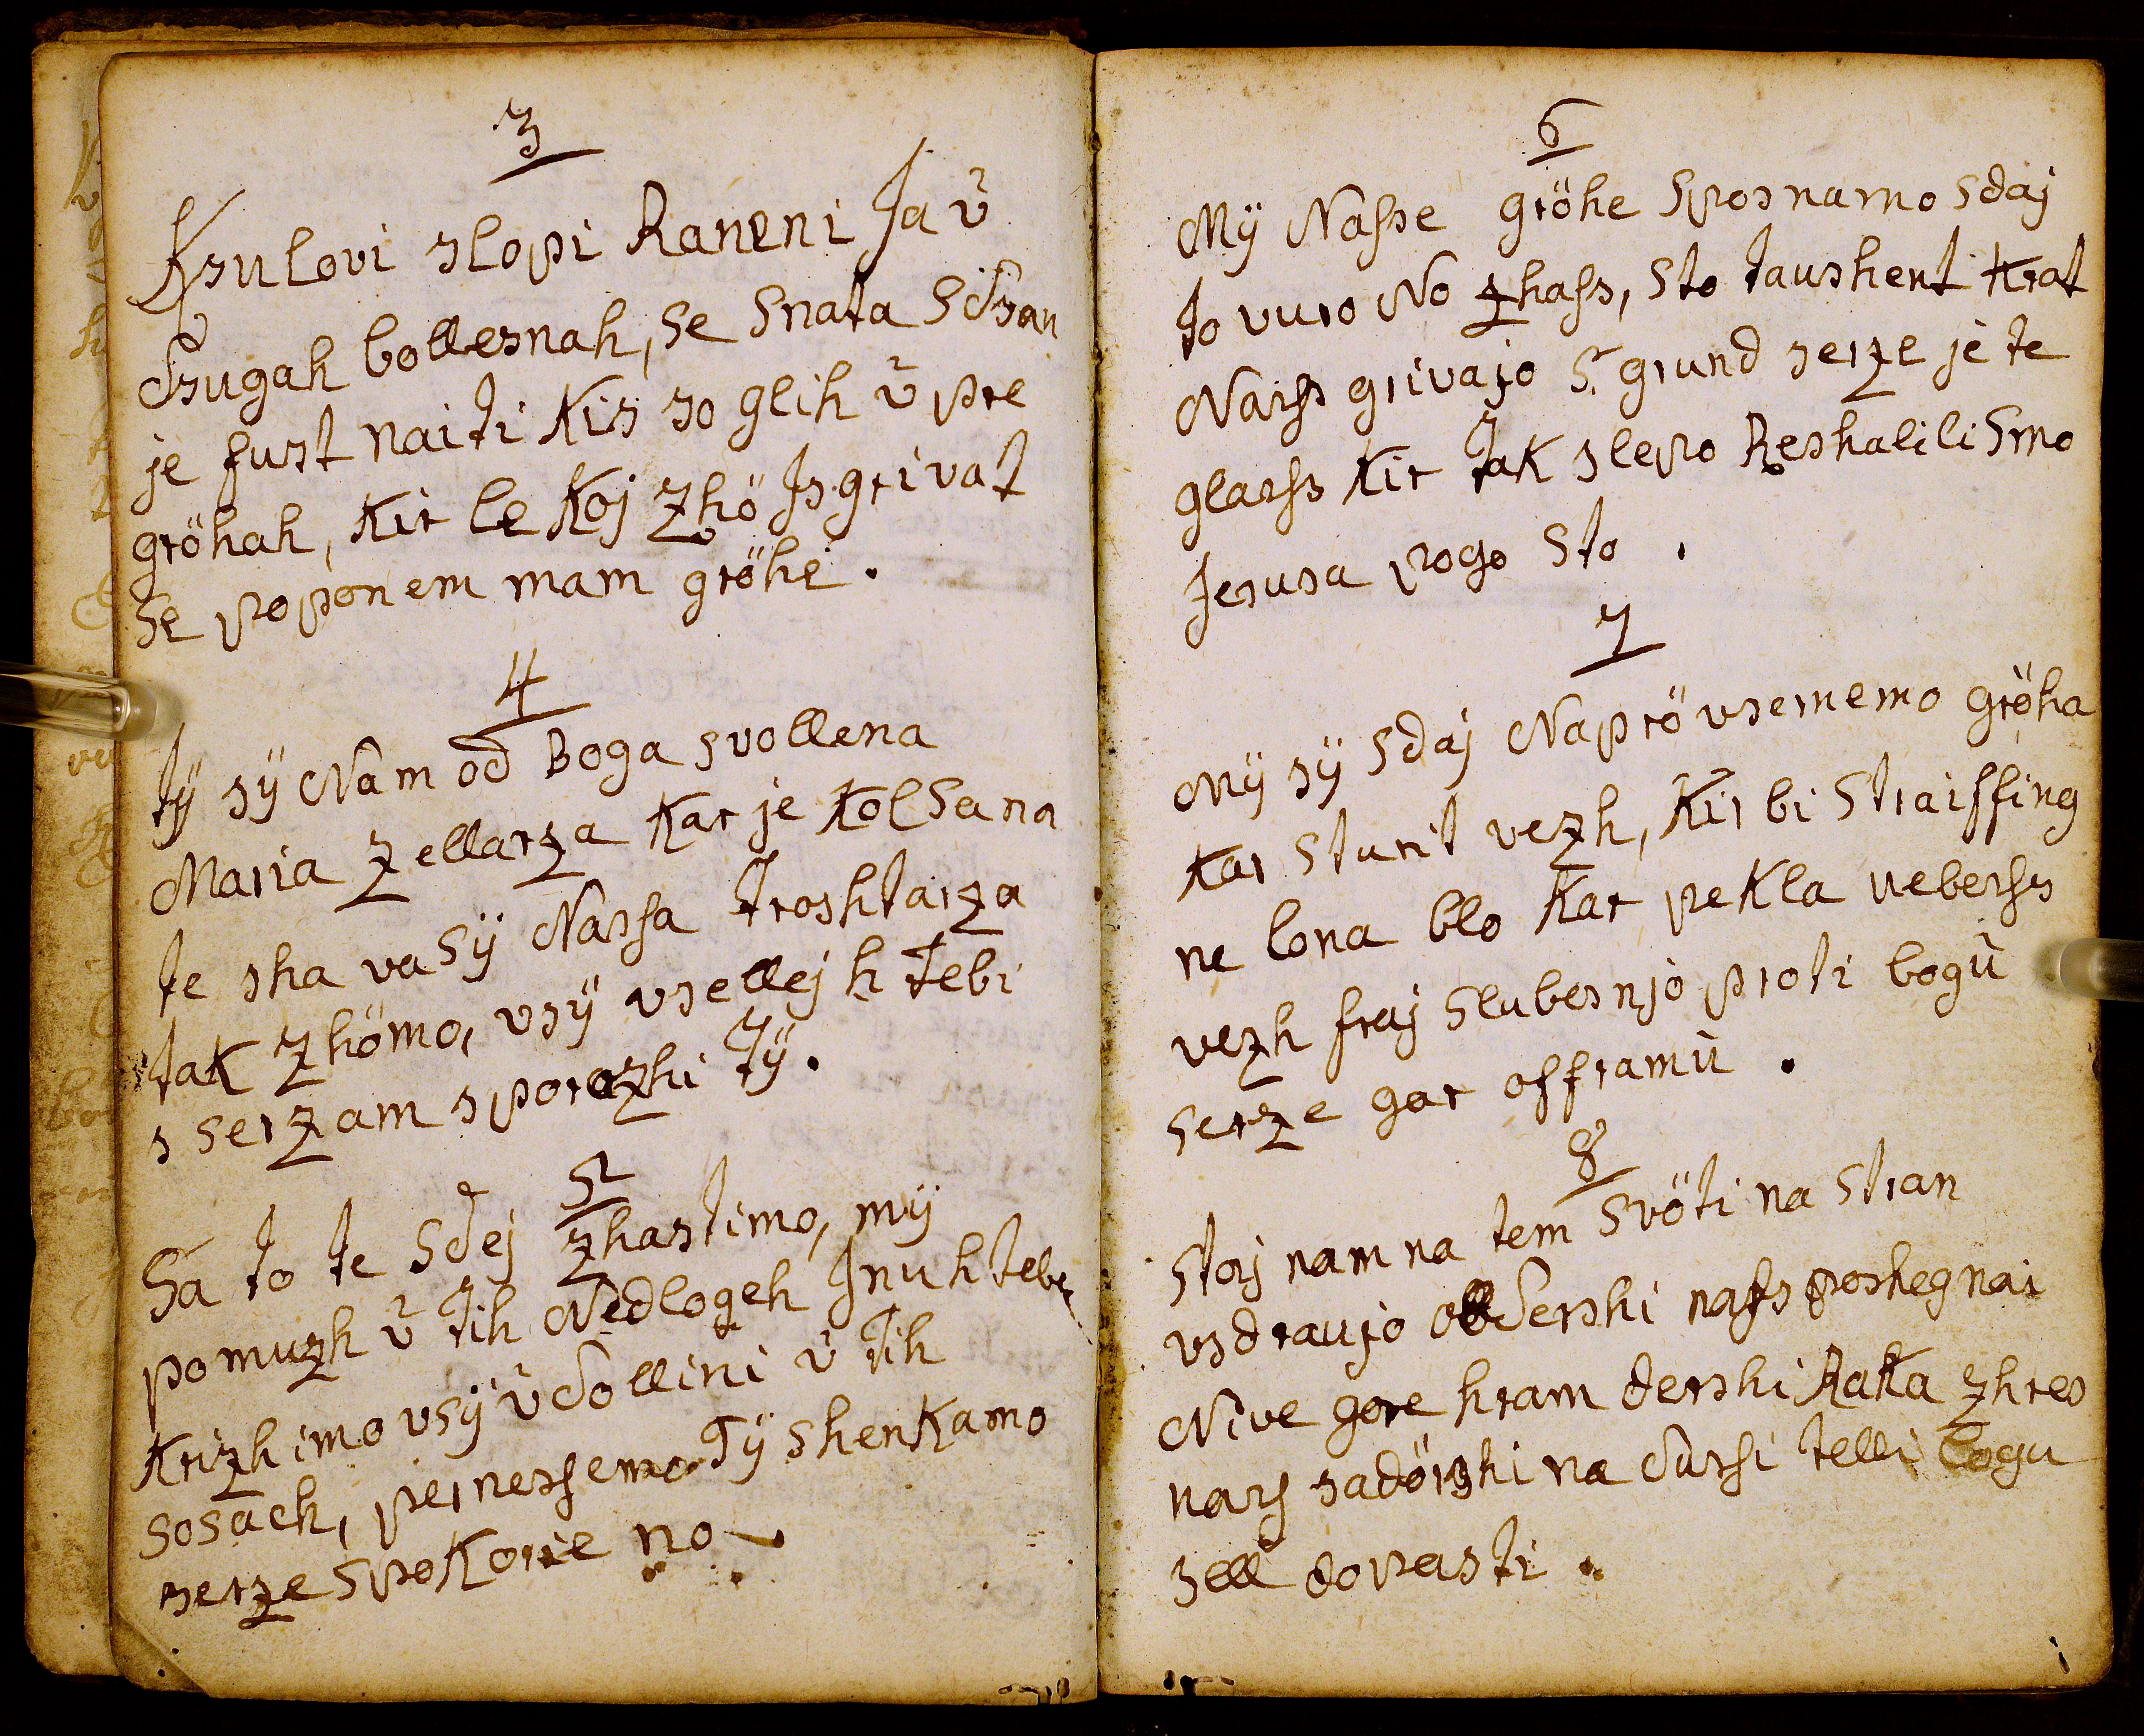 3
Ksulovi slopi Raneni Ja ū
Dsugah bollesnah, se snata sidsan
je fust naiti Kis so glih ū pre
gröhah, Kir le Koj zhö Is grivat
se poponem mam gröhe.
4
Tÿ sÿ Nam od Boga svollena
Maria zellarza Kar je Kolsana
te sha va sÿ Nassa troshtarza
tak zhömo, vsÿ vsellej h Tebi
s serzam sporozhi Tÿ.
5
Sa to te sdej zhastimo, mÿ
pomuzh ū tih Nedlogeh Inu h tebe
Krizhimo vsÿ ū dollini ū tih
sosach, pernessemo Tÿ shenkamo
serze spoKorie no
6
Mÿ Nasse gröhe sposnamo sdaj
to vuro No zhass, sto taushent Krat
Narss grivajo s. grund serze je te
glarss Kir tak slepo Reshalili smo
Jesusa pogo sto.
7
Mÿ sÿ sdaj Naprö vsememo gröha
Kar sturit vezh, Kir bi straiffing
ne lona blo Kar peKla neberss
vezh fraj slubesnjo proti bogū
serze gorofframū.
8
Stoj nam na tem svöti na stran
vsdraujo dershi nass poshegnai
Nive gore hram dershi Raka zhres
nars sadörshi na dursi telli logu
sell dopasti.